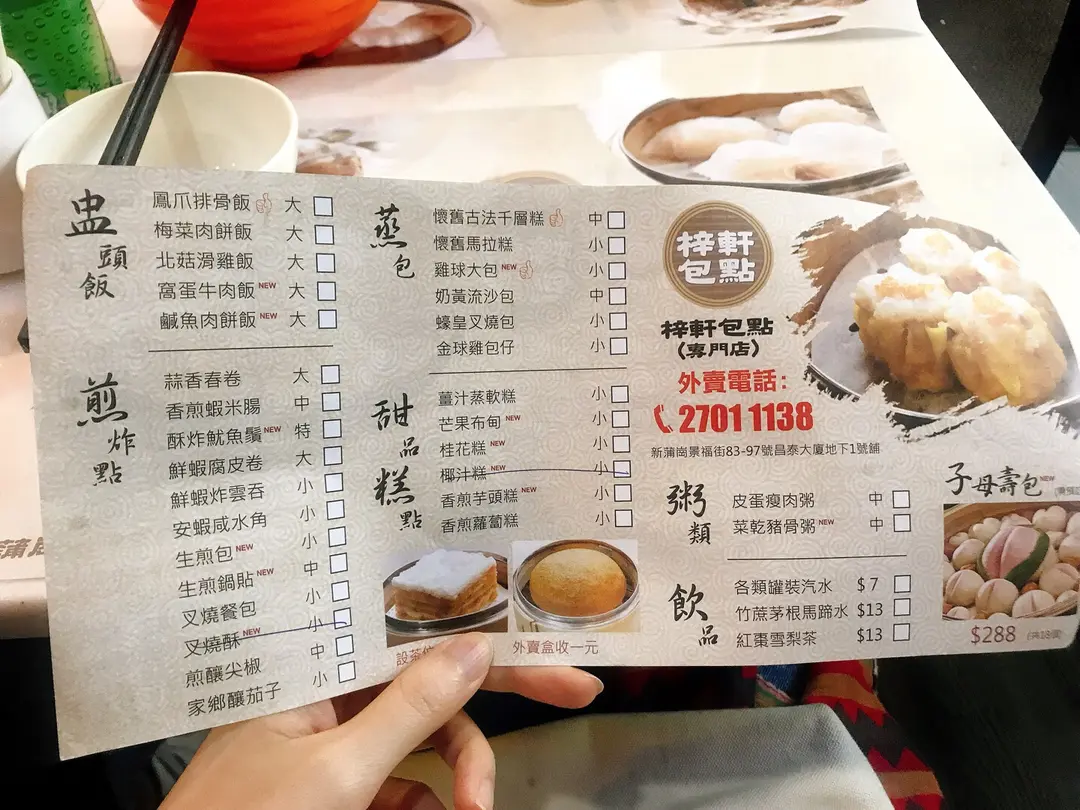 盅頭飯
鳳爪排骨飯 大
梅菜肉餅飯 大
北菇滑雞飯 大
窩蛋牛肉飯 NEW 大
鹹魚肉餅飯 NEW 大
煎炸點
蒜香春卷 大
香煎蝦米腸 中
酥炸魷魚鬚 NEW 特
鮮蝦腐皮卷 大
鮮蝦炸雲吞 小
安蝦咸水角 小
生煎包 NEW 小
生煎鍋貼 NEW 中
叉燒餐包 小
叉燒酥 NEW 小
煎釀尖椒 中
家鄉釀茄子 小
蒸包
懷舊古法千層糕 中
懷舊馬拉糕 小
雞球大包 NEW 小
奶黃流沙包 中
蠔皇叉燒包 小
金球雞包仔 小
甜品糕點
薑汁蒸軟糕 小
芒果布甸 NEW 小
桂花糕 NEW 小
椰汁糕 NEW 小
香煎芋頭糕 NEW 小
香煎蘿蔔糕 小
設茶
外賣盒收一元
梓軒
包點
梓軒包點
(專門店)
外賣電話:
2701 1138
新蒲崗景福街83-97號昌泰大廈地下1號舖
粥類
皮蛋瘦肉粥 中
菜乾豬骨粥 NEW 中
飲品
各類罐裝汽水 $7
竹蔗茅根馬蹄水 $13
紅棗雪梨茶 $13
子母壽包 NEW
$288